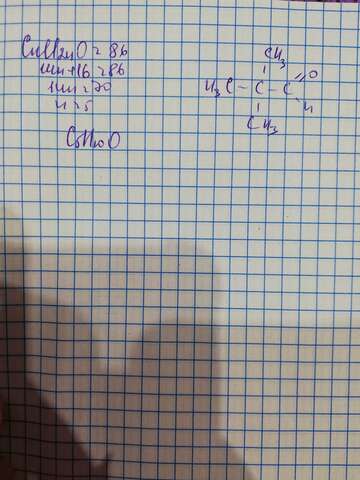 CnH2nO = 86
14n+16 = 86
14n = 70
n = 5
C5H10O
CH3
O
H3C - C - C
H
CH3